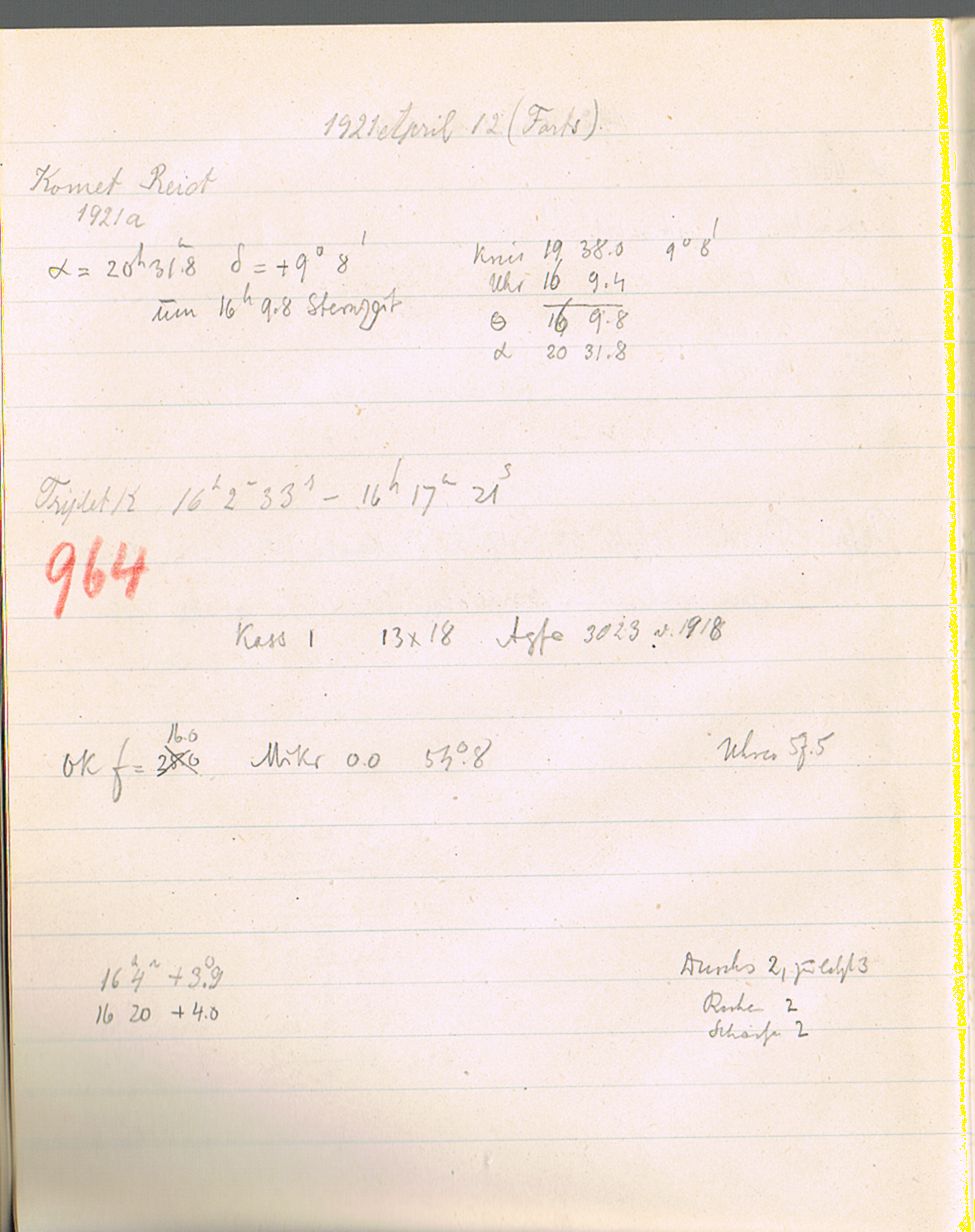 1921 April 12 (Forts).
Komet Reid
1921a
α = 20ʰ 31ᵐ.8 δ = +9° 8'
um 16ʰ 9.8 Sternzeit
Kreis 19 38.0 9° 8'
Uhr 16 9.4
Θ 16 9.8
α 20 31.8
Triplet K 16ʰ 2ᵐ 33ˢ – 16ʰ 17ᵐ 21ˢ
964
Kass 1 13x18 Agfa 3023 v. 1918
16.0
OK f = Mikr 0.0 54°.8
57.5
16ʰ 4ᵐ +3°.9
16 20 +4.0
Durchs 2, zuletzt 3
Ruhe 2
Schärfe 2